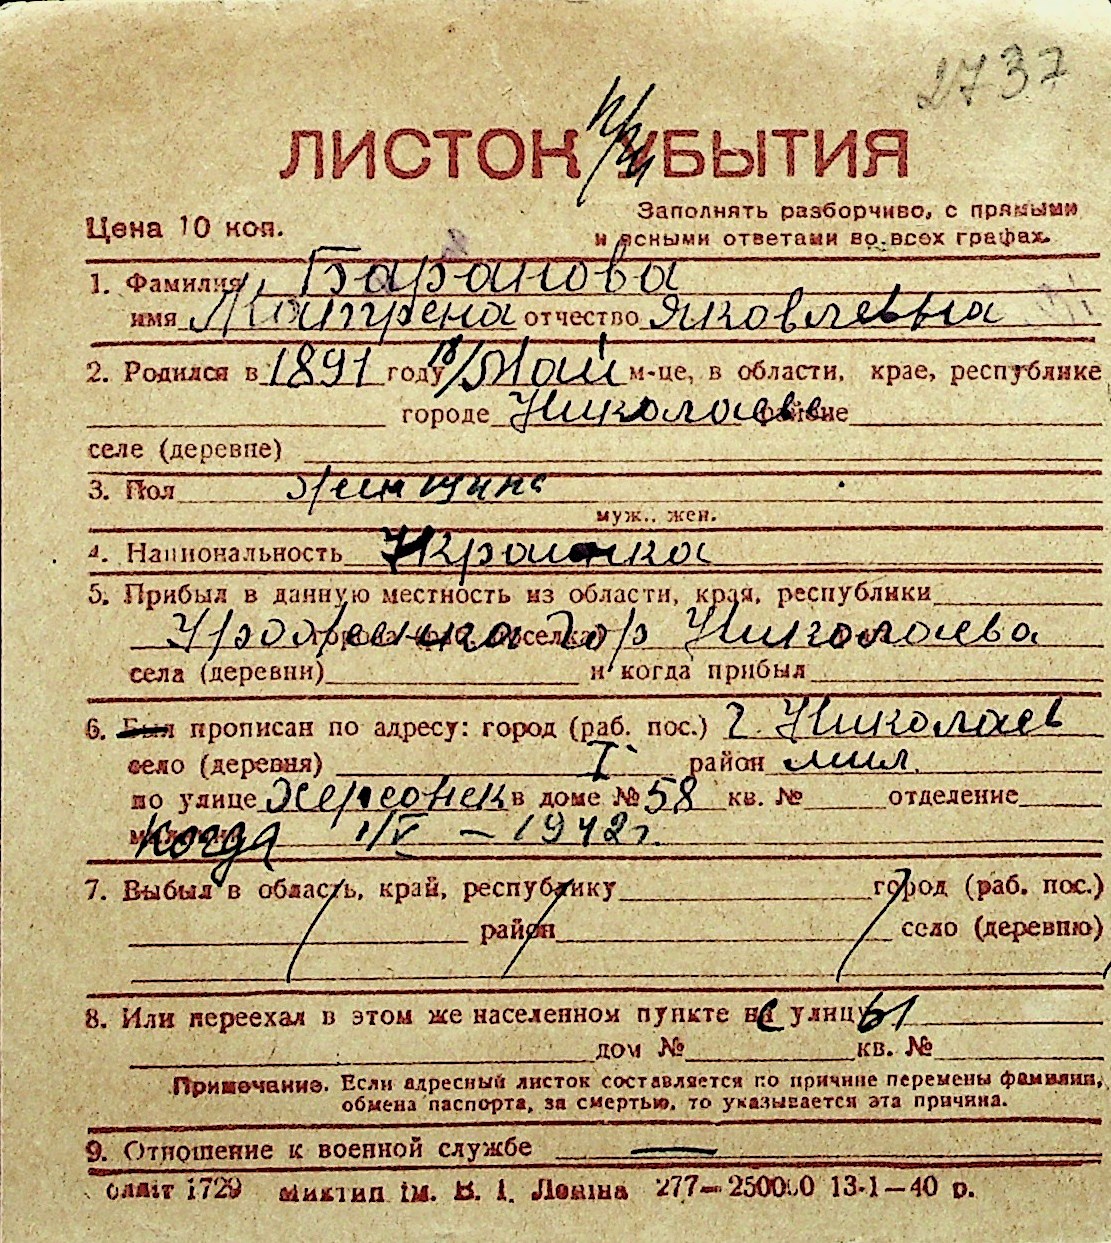 2737
ЛИСТОК УБЫТИЯ
Цена 10 коп.
Заполнять разборчиво, с прямыми
и ясными ответами во всех графах.
1. Фамилия Баранова
имя Матрена отчество Яковлевна
2. Родился в 1891 году 18/Май м-це, в области, крае, республике
городе Николаеве районе
селе (деревне)
3. Пол женщина
муж., жен.
4. Национальность Украинка
5. Прибыл в данную местность из области, края, республики
Уроженка гор Николаева
села (деревни) и когда прибыл
6. Был прописан по адресу: город (раб. пос.) г. Николаев
село (деревня) I район мил.
по улице Херсонск в доме № 58 кв. № отделение
когда 1/V – 1942 г.
7. Выбыл в область, край, республику город (раб. пос.)
район село (деревню)
8. Или переехал в этом же населенном пункте с улицы
дом № кв. №
Примечание. Если адресный листок составляется по причине перемены фамилии,
обмена паспорта, за смертью, то указывается эта причина.
9. Отношение к военной службе —
1729 ім. В. І. Леніна 277—250000 13-1—40 р.